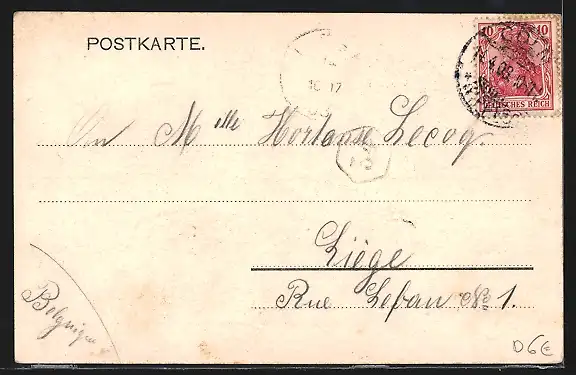 POSTKARTE.
10 10
DEUTSCHES REICH
4.08
10 17
An Mlle Hortense Lecoq.
Liège
Rue Leban No 1.
Belgique
D6€